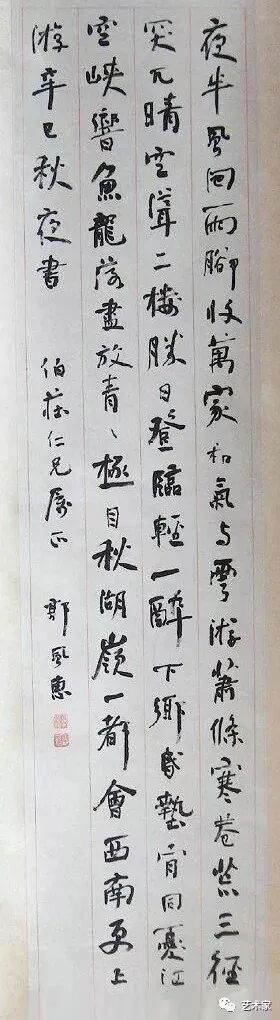 夜半風回雨腳收萬家和氣与雲浮蕭條寒巷荒三徑
突兀晴空聳二樓勝日登臨輕一醉下鄉昏墊肎同憂江
空峽響魚龍落盡放青ヽ極目秋湖嶺一都會西南更上
游辛巳秋夜書 伯莊仁兄屬正 郭風惠
艺术家